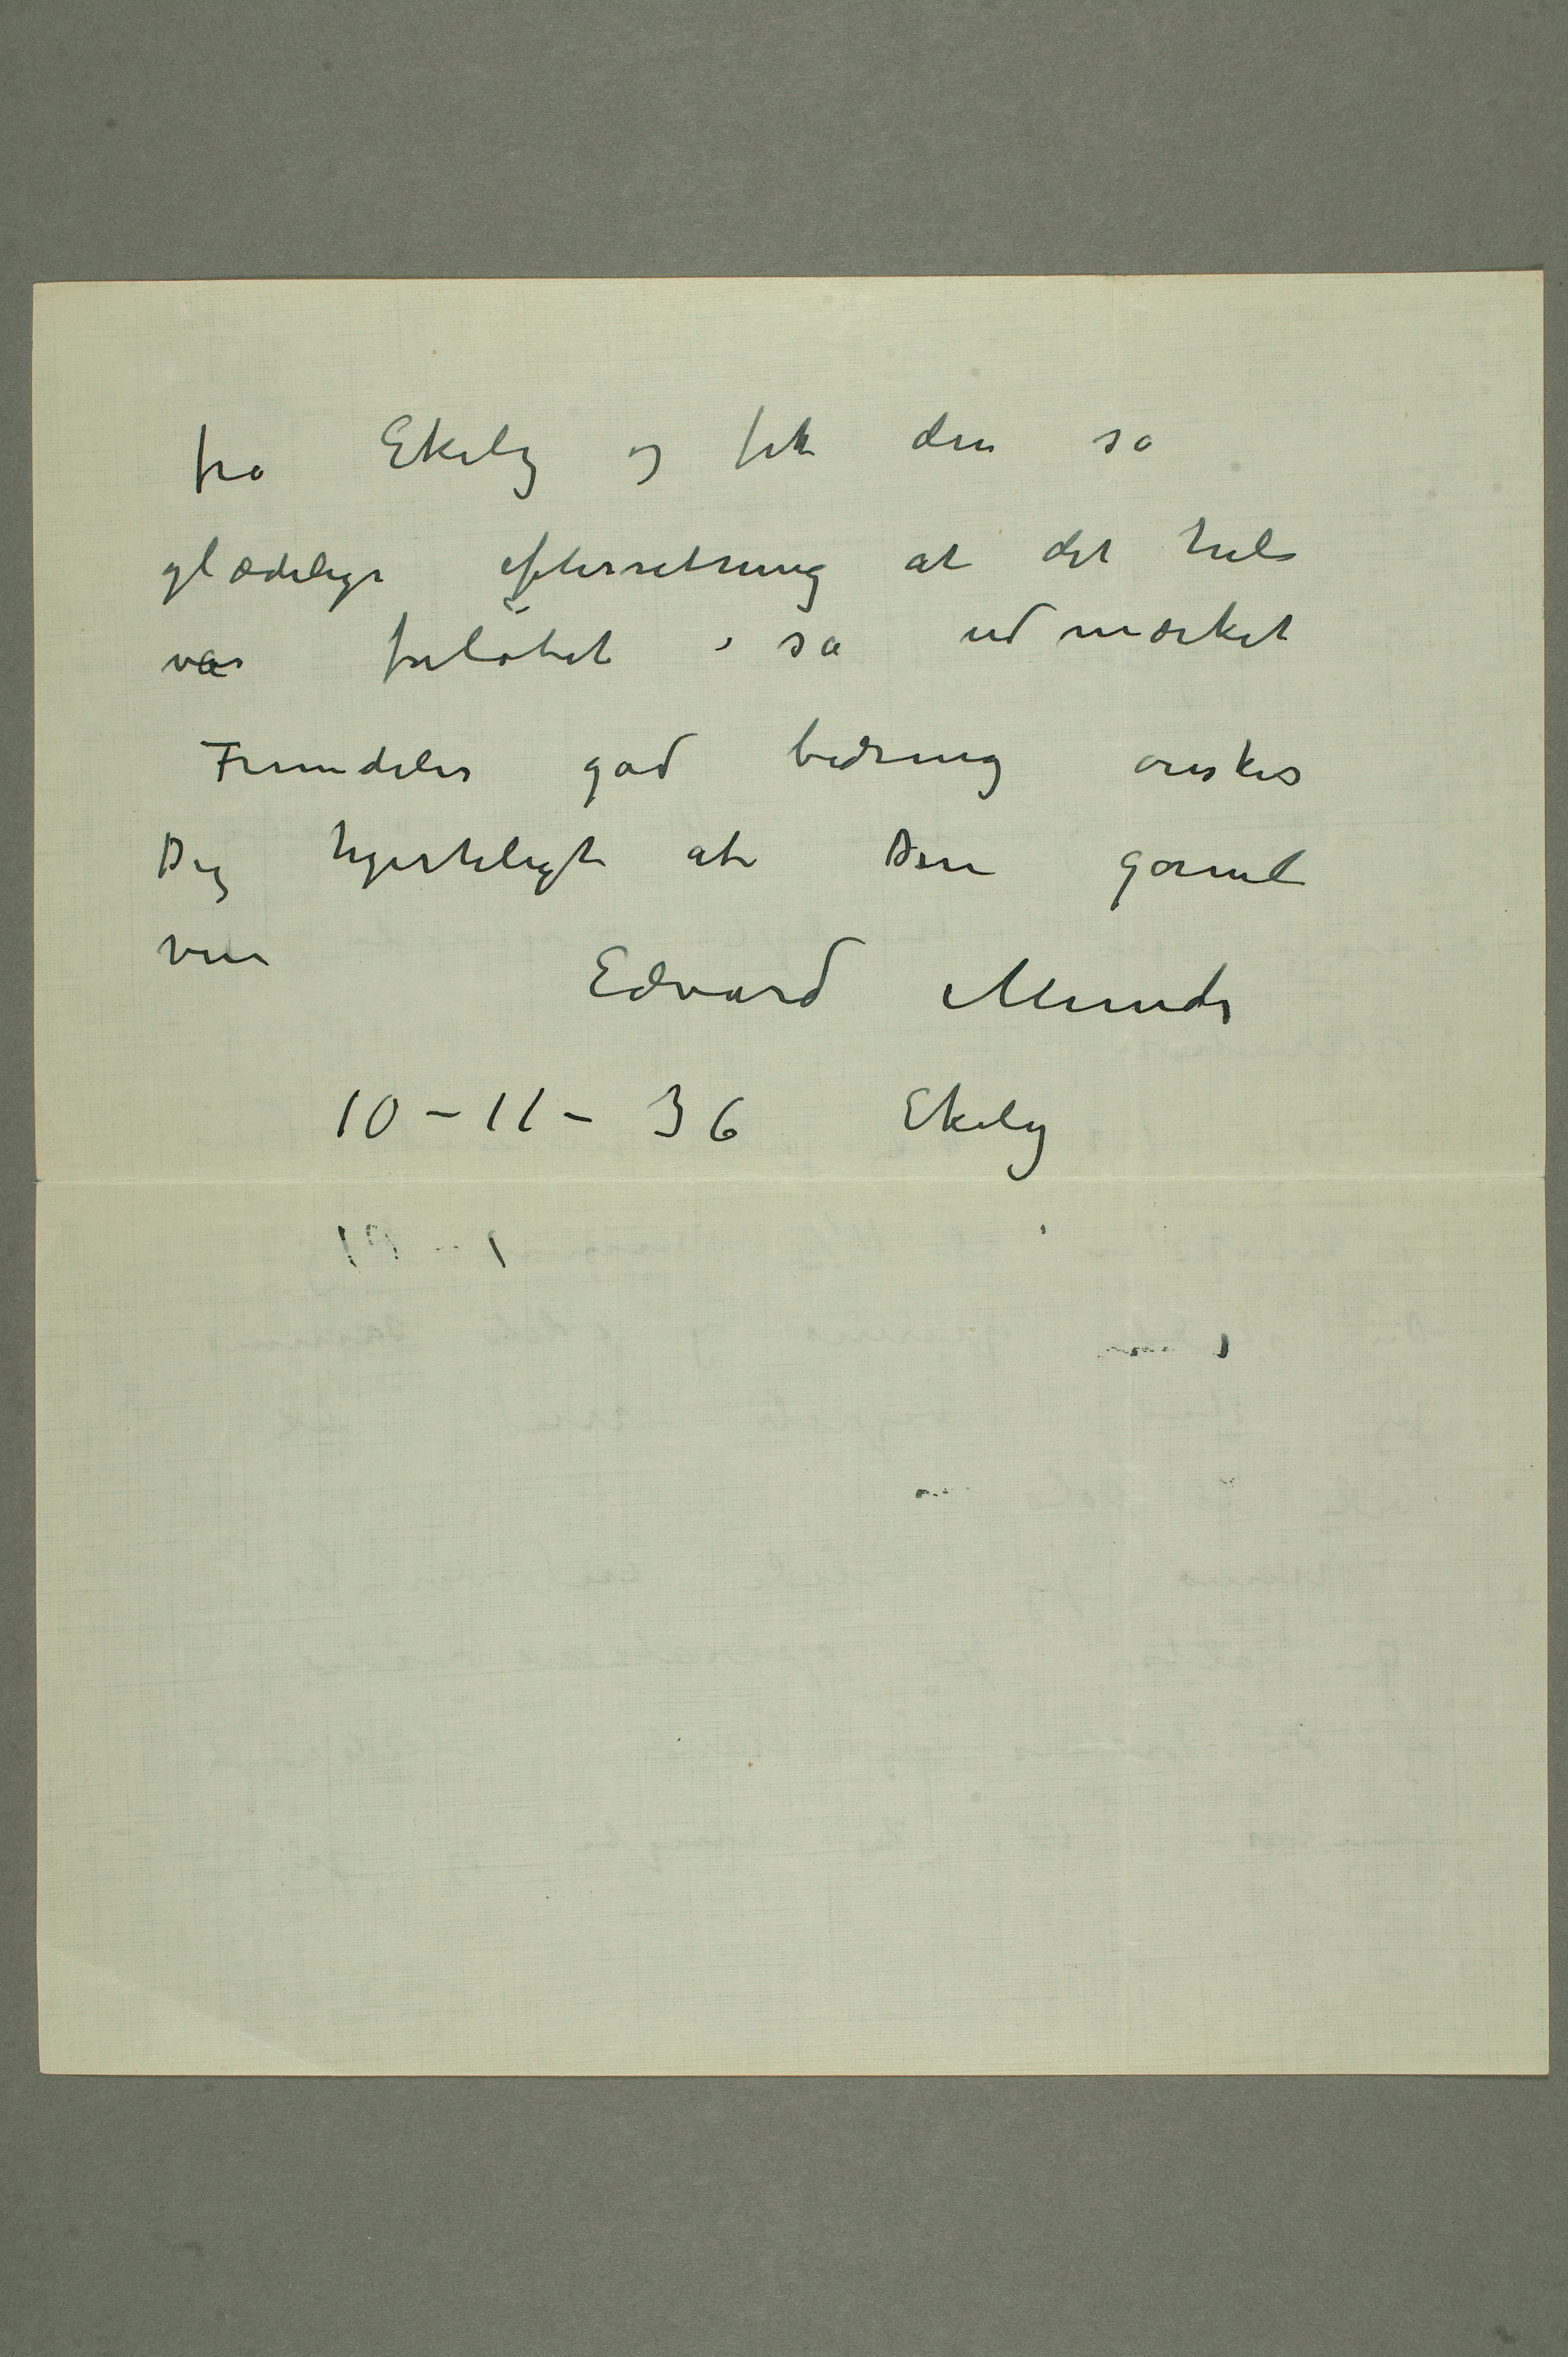 fra Ekely og fik den så
glædelige efterretning at det hele
var forløbet så udmærket
Fremdeles god bedring ønskes
Dig hjerteligt af Din gamle
ven
Edvard Munch
10-11-36 Ekely